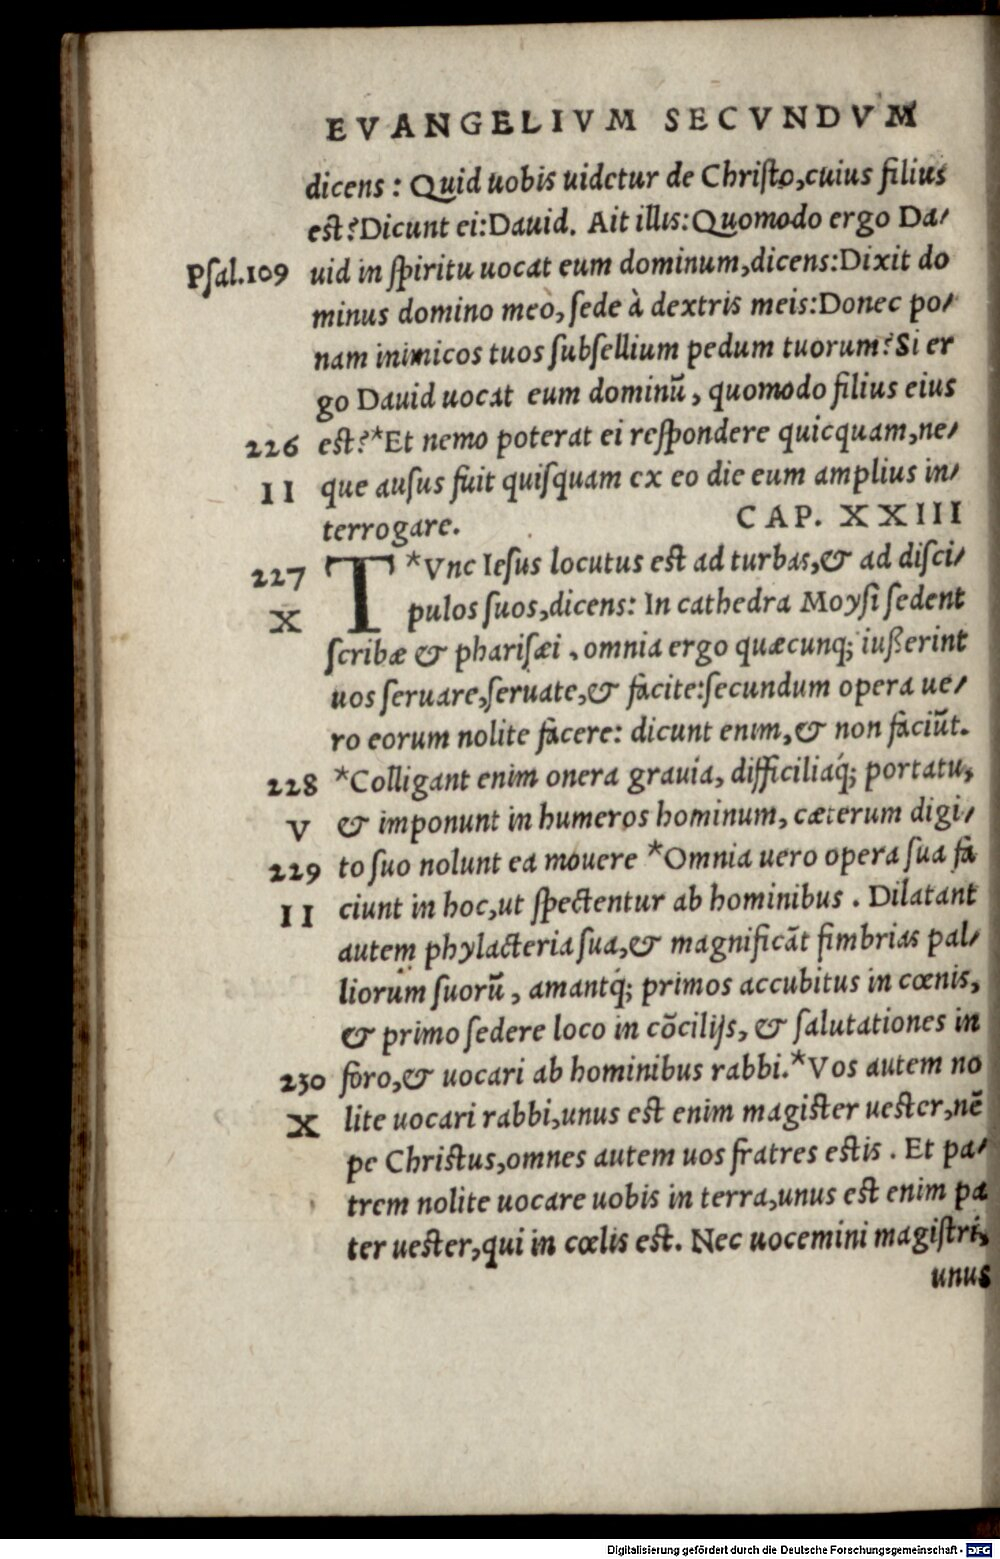 EVANGELIVM SECVNDVM
dicens : Quid uobis uidetur de Christo,cuius filius
est?Dicunt ei:Dauid. Ait illis:Quomodo ergo Da/
Psal.109 uid in spiritu uocat eum dominum,dicens:Dixit do
minus domino meo, sede à dextris meis:Donec po/
nam inimicos tuos subsellium pedum tuorum?Si er
go Dauid uocat eum dominū, quomodo filius eius
226 est?*Et nemo poterat ei respondere quicquam,ne/
II que ausus fuit quisquam ex eo die eum amplius in/
terrogare. CAP. XXIII
227 T*Vnc Iesus locutus est ad turbas,& ad disci/
X pulos suos,dicens: In cathedra Moysi sedent
scribæ & pharisæi , omnia ergo quæcunq; iußerint
uos seruare,seruate,& facite:secundum opera ue/
ro eorum nolite facere: dicunt enim,& non faciūt.
228 *Colligant enim onera grauia, difficiliaq́; portatu,
V & imponunt in humeros hominum, cæterum digi/
229 to suo nolunt ea mouere *Omnia uero opera sua fa
II ciunt in hoc,ut spectentur ab hominibus . Dilatant
autem phylacteria sua,& magnificāt fimbrias pal/
liorum suorū , amantq́; primos accubitus in cœnis,
& primo sedere loco in cōcilijs, & salutationes in
230 foro,& uocari ab hominibus rabbi.*Vos autem no
X lite uocari rabbi,unus est enim magister uester,nē
pe Christus,omnes autem uos fratres estis . Et pa/
trem nolite uocare uobis in terra,unus est enim pa
ter uester,qui in cœlis est. Nec uocemini magistri,
unus
Digitalisierung gefördert durch die Deutsche Forschungsgemeinschaft - DFG